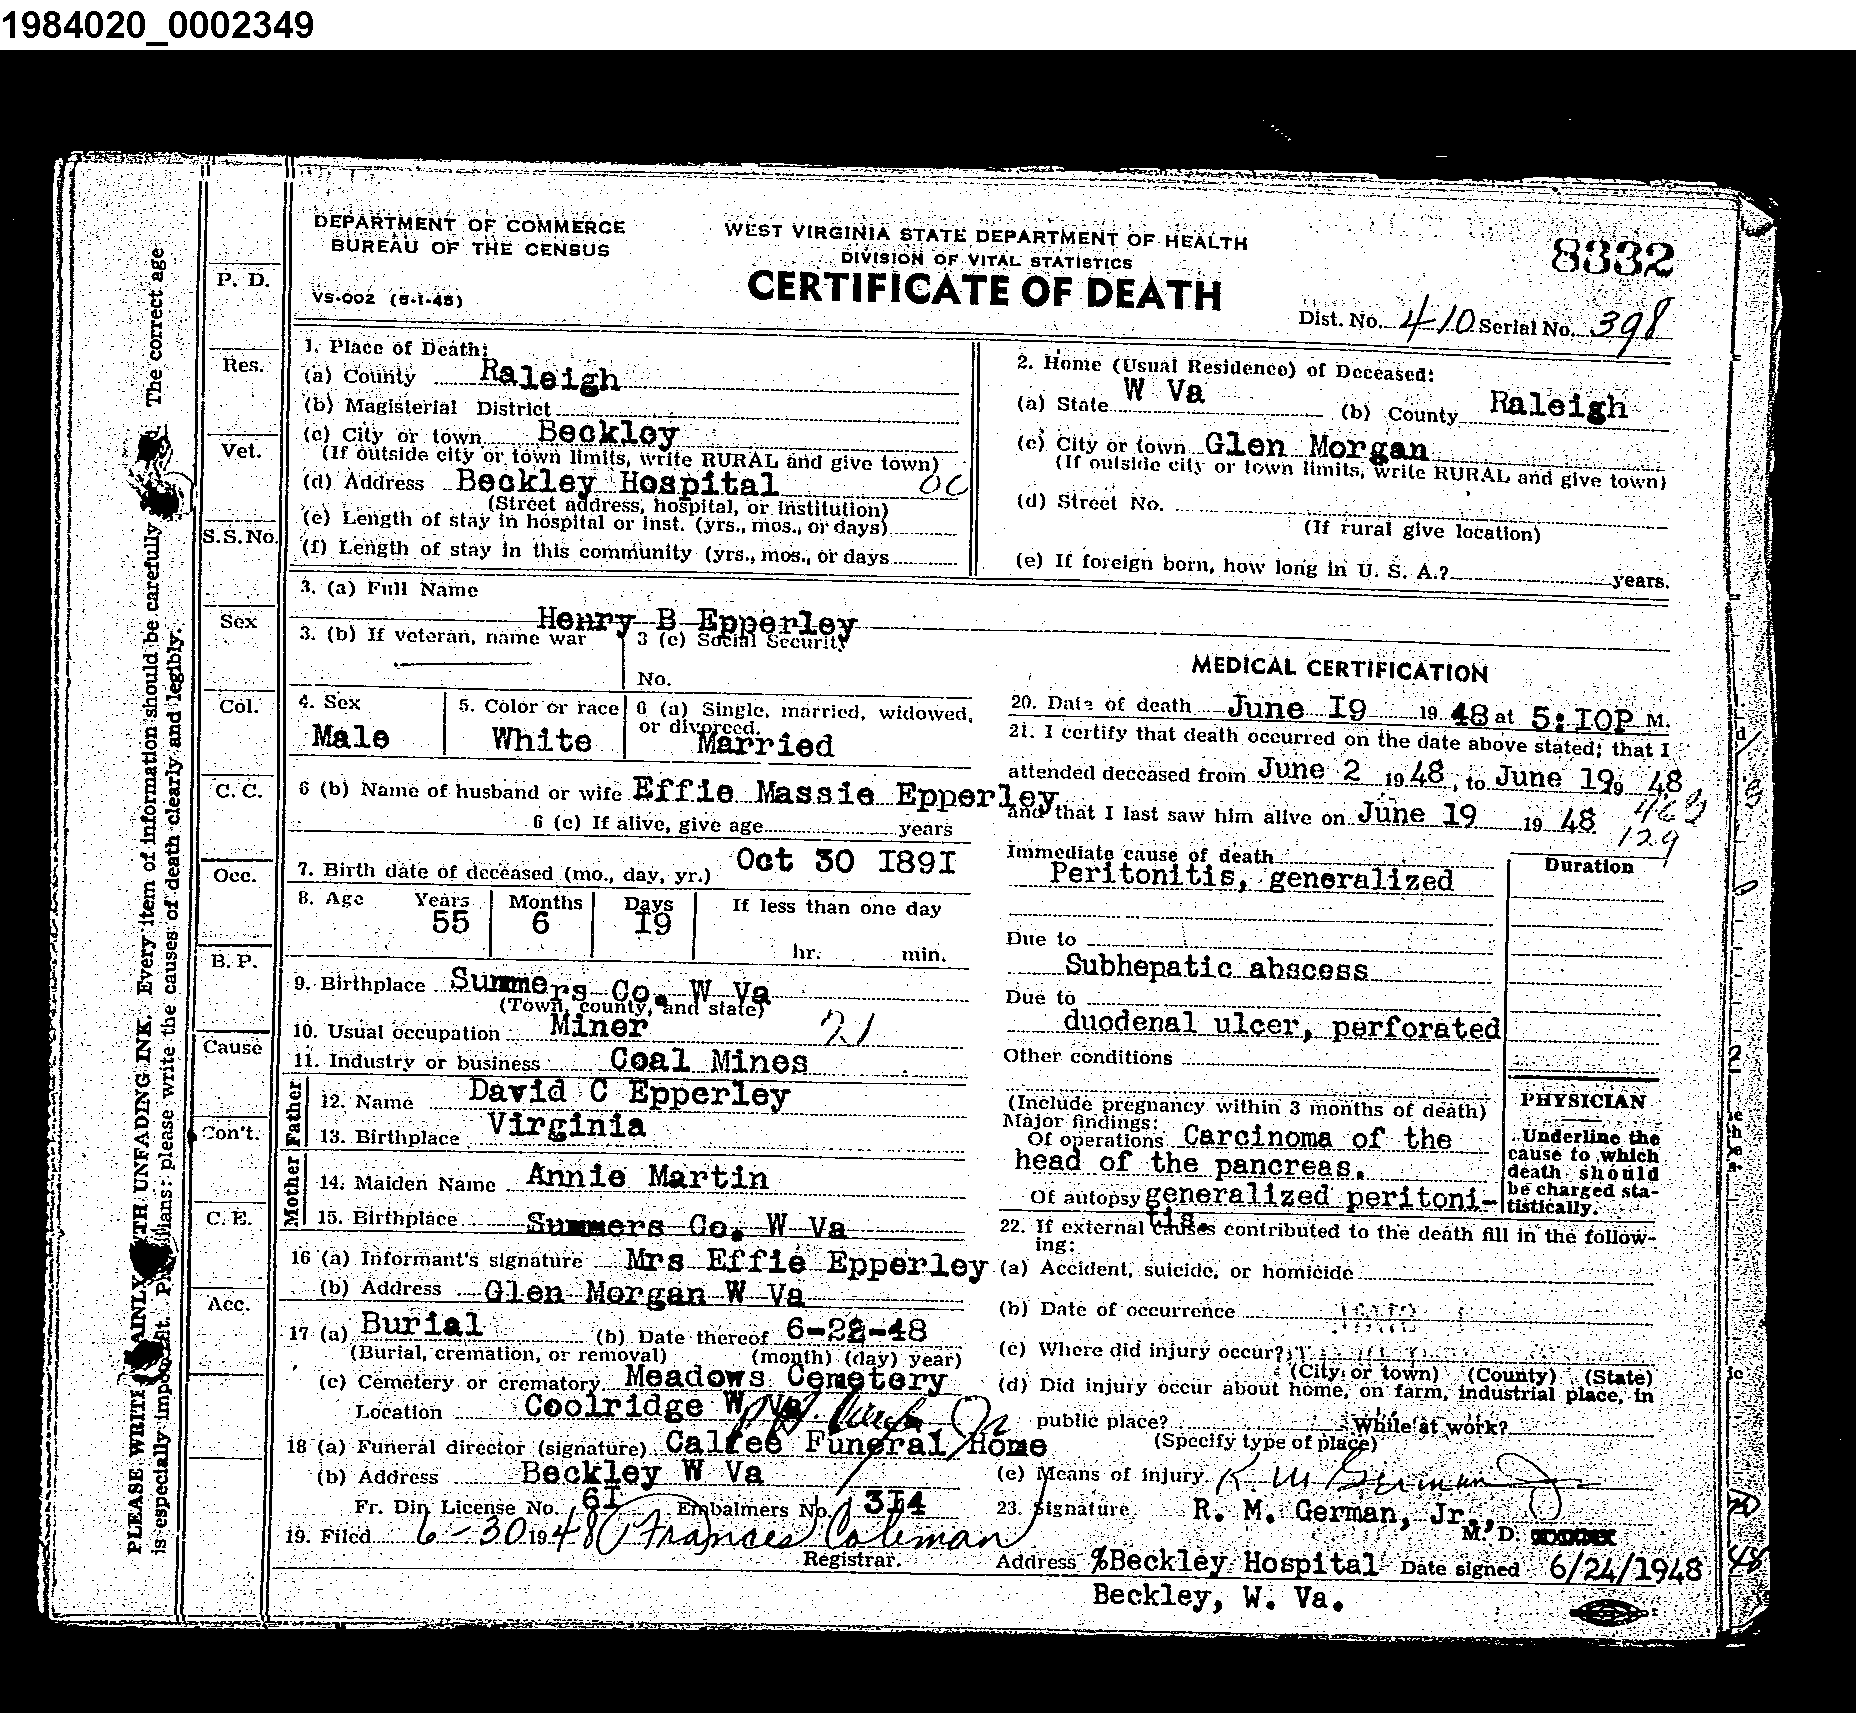 1984020_0002349
DEPARTMENT OF COMMERCE
BUREAU OF THE CENSUS
VS-002 (8-1-45)
WEST VIRGINIA STATE DEPARTMENT OF HEALTH
DIVISION OF VITAL STATISTICS
CERTIFICATE OF DEATH
8332
Dist. No. 410 Serial No. 398
PLEASE WRITE PLAINLY WITH UNFADING INK. Every item of information should be carefully The correct age
is especially important. Physicians: please write the causes of death clearly and legibly.
P. D.
Res.
Vet.
S.S. No.
Sex
Col.
C. C.
Occ.
B. P.
Cause
Con't.
C. E.
Acc.
1. Place of Death:
(a) County Raleigh
(b) Magisterial District
(c) City or town Beckley
(If outside city or town limits, write RURAL and give town)
(d) Address Beckley Hospital
(Street address, hospital, or institution)
(e) Length of stay in hospital or inst. (yrs., mos., or days)
(f) Length of stay in this community (yrs., mos., or days
2. Home (Usual Residence) of Deceased:
(a) State W Va (b) County Raleigh
(c) City or town Glen Morgan
(If outside city or town limits, write RURAL and give town)
(d) Street No.
(If rural give location)
(e) If foreign born, how long in U. S. A.? years.
3. (a) Full Name
Henry B Epperley
3. (b) If veteran, name war
3 (c) Social Security
No.
4. Sex
Male
5. Color or race
White
6 (a) Single, married, widowed,
or divorced.
Married
6 (b) Name of husband or wife Effie Massie Epperley
6 (c) If alive, give age years
7. Birth date of deceased (mo., day, yr.) Oct 30 I89I
8. Age Years Months Days If less than one day
55 6 I9
hr. min.
9. Birthplace Summers Co. W Va
(Town, county, and state)
10. Usual occupation Miner 21
11. Industry or business Coal Mines
Father
12. Name David C Epperley
13. Birthplace Virginia
Mother
14. Maiden Name Annie Martin
15. Birthplace Summers Co. W Va
16 (a) Informant's signature Mrs Effie Epperley
(b) Address Glen Morgan W Va
17 (a) Burial (b) Date thereof 6-22-48
(Burial, cremation, or removal) (month) (day) year)
(c) Cemetery or crematory Meadows Cemetery
Location Coolridge W Va.
18 (a) Funeral director (signature) Calfee Funeral Home
(b) Address Beckley W Va
Fr. Dir. License No. 6I Embalmers No. 3I4
19. Filed 6-30 1948 Frances Coleman
Registrar.
MEDICAL CERTIFICATION
20. Date of death June I9 19 48 at 5:IOP M.
21. I certify that death occurred on the date above stated; that I
attended deceased from June 2 19 48, to June 19 19 48
and that I last saw him alive on June 19 19 48
129
Immediate cause of death
Peritonitis, generalized
Duration
Due to
Subhepatic abscess
Due to
duodenal ulcer, perforated
Other conditions
(Include pregnancy within 3 months of death)
Major findings:
Of operations Carcinoma of the
head of the pancreas.
Of autopsy generalized peritoni-
tis.
PHYSICIAN
Underline the
cause to which
death should
be charged sta-
tistically.
22. If external causes contributed to the death fill in the follow-
ing:
(a) Accident, suicide, or homicide
(b) Date of occurrence
(c) Where did injury occur?
(City or town) (County) (State)
(d) Did injury occur about home, on farm, industrial place, in
public place? While at work?
(Specify type of place)
(e) Means of injury
R. M. German Jr
23. Signature R. M. German, Jr.,
M. D.
Address %Beckley Hospital Date signed 6/24/1948
Beckley, W. Va.